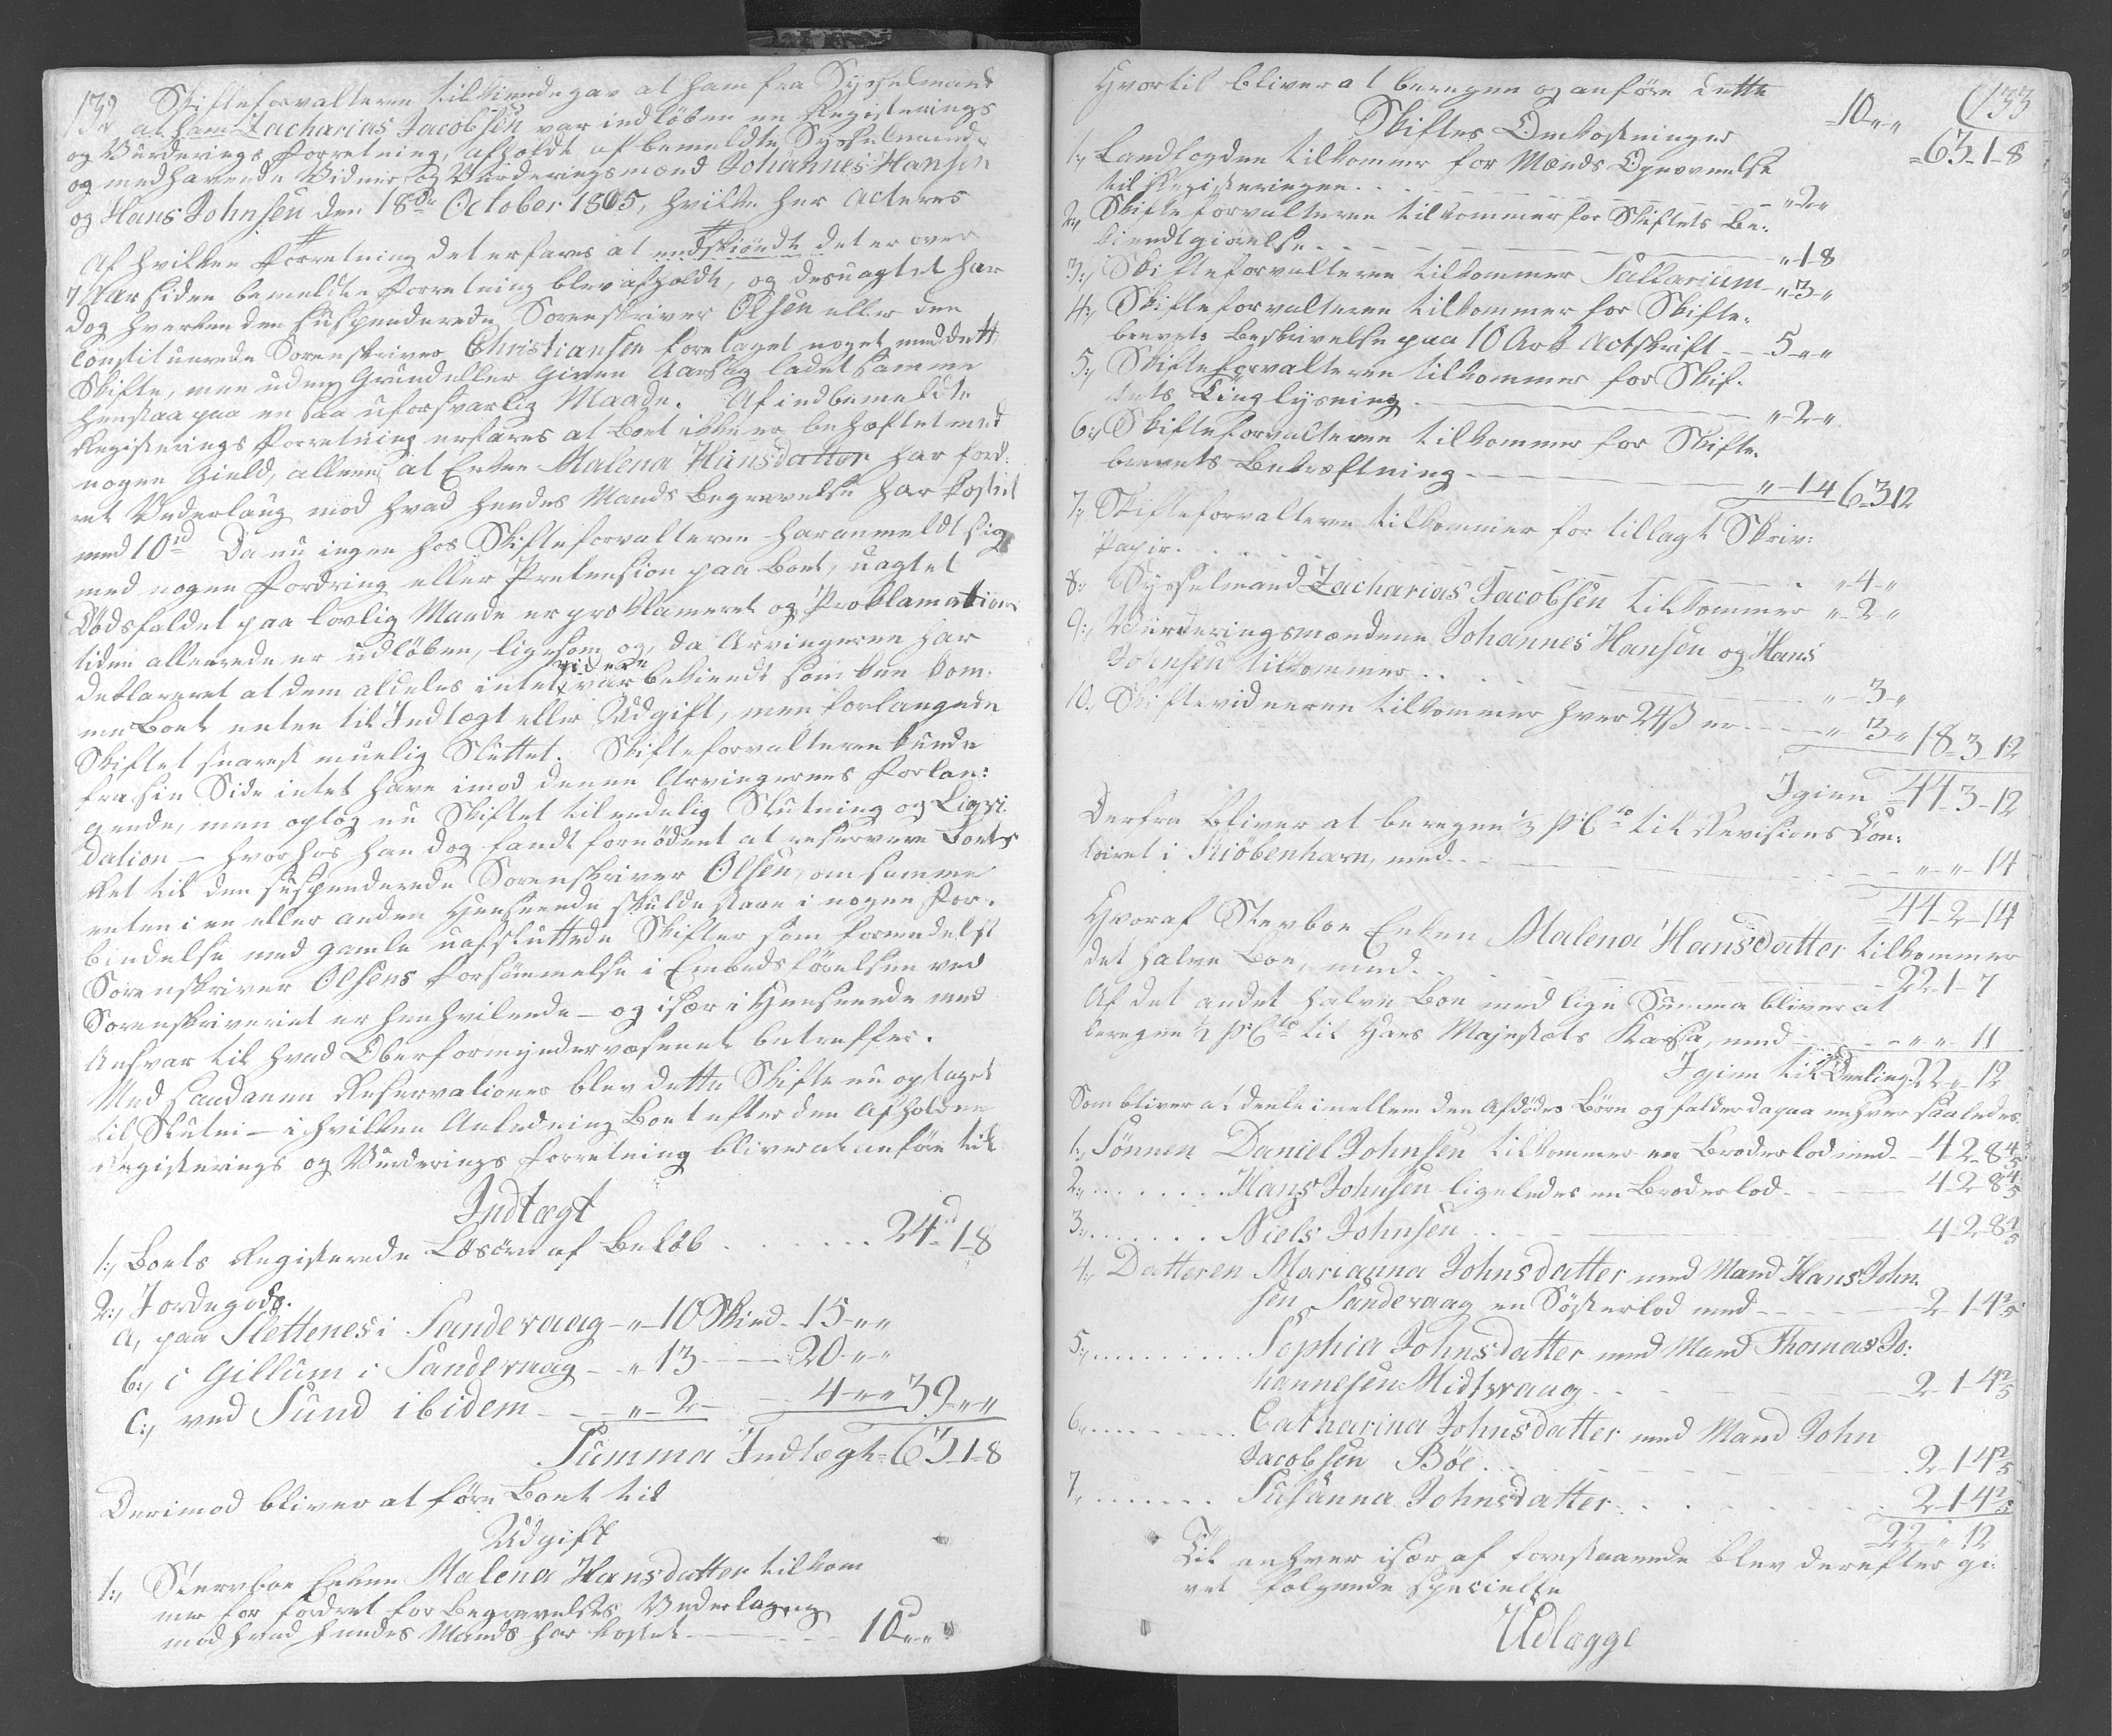 132 Skifteforvalteren tilkiendegav at ham fra Sysselmand
at ham Zacharias Jacobsen var indløben en Registerings
og Vurderings Forretning, afholdt af bemeldte Sysselmand
og medhavende Vidner og Vurderingsmænd Johannes Hansen
og Hans Johnsen den 18de October 1805, hvilken her Acteres
#
Af hvilken Forretning det erfares at endskiøndt det er over
7 Aar siden bemeldte Forretning blev afholdt, og desuagtet har
dog hverken den suspenderede Sorenskriver Olsen eller den
Constituerede Sorenskriver Christiansen foretaget noget med dette
Skifte, men uden Grund eller given Aarsag ladet samme
henstaa paa en saa uforsvarlig Maade. Af indbemeldte
Registerings Forretning erfares at Boet ikke er behæftet med
nogen Gield, allene at Enken Malena Hansdatter har ford-
ret Vederlaug mod hvad hendes Mands Begravelse har kostet
med 10 rd Da nu ingen hos Skifteforvalteren har anmeldt sig
med nogen Fordring eller Prætension paa Boet, uagtet
Dødsfaldet paa lovlig Maade er proklameret og Proklamations
tiden allerede er udløben, ligesom og, da Arvingerne har
deklareret at dem aldeles intet videre var bekiendt som kan kom-
me Boet enten til Indtægt eller Udgift, men forlangede
Skiftet snarest muelig Sluttet. Skifteforvalteren kunde
fra sin Side intet have imod denne Arvingernes Forlan:
gende, men optog nu Skiftet til endelig Slutning og Liqvi
dation – hvorhos han dog fandt fornødent at reservere Boets
Ret til den suspenderede Sorenskriver Olsen, om samme
enten i en eller anden Henseende skulde staae i nogen For-
bindelse med gamle uafsluttede Skifter som formedelst
Sorenskriver Olsens Forsømmelse i Embedsførelsen ved
Sorenskriveriet er henhvilende – og især i Henseende med
Ansvar til hvad Overformyndervæsenet betreffer.
Med saadanne Reservationer blev dette Skifte nu optaget
til Slutn – i hvilken Anledning Boet efter den Afholdne
Registerings og Vurderings Forretning bliver at anføre til
Indtægt
1:, Boets Registerede Løsøre af Beløb . . . . . . 24 rd 1-8
2:, Jordegods.
a, paa Slettenes i Sandevaag - „ - 10 Skind - 15 - „ „
b:, i Gillum i Sandevaag - „ 13 - 20 - „ „
c:, ved Sund ibidem - „ - 2 - 4 - „ „ 39 „ „
Summa Indtægt = 63-1-8
Derimod bliver at føre Boet til
Udgift
1:, Stervboe Enken Malena Hansdatter tilkom
mer for fordret for Begravelses Vederlag
mod hvad hendes Mands har kostet 10 „ „
133
Hvortil bliver at beregne og anføre dette 10 „ „
Skiftes Omkostninger = 63-1-8
1:, Landfogden tilkommer for Mænds Opnævnelse
til Registeringen . . . „ 2 „
2:, Skifteforvalteren tilkommer for Skiftets Be-
kiendtgiørelse - „ 1 8
3:, Skifteforvalteren tilkommer Sallarium „ 3 „
4:, Skifteforvalteren tilkommer for Skifte-
brevets Beskrivelse paa 10 Ark Actskrift - 5 „ „
5:, Skifteforvalteren tilkommer for Skif-
tets Tinglysning - „ 2 „
6:, Skifteforvalteren tilkommer for Skifte-
brevets Bekræftning - „ 1 4 6-3-12
7:, Skifteforvalteren tilkommer for tillagt Skriv:
Papir . . . „ 4 „
8:, Sysselmand Zacharias Jacobsen tilkommer „ 2 „
9:, Vurderingsmændene Johannes Hansen og Hans
Johnsen tilkommer . . „ 3 „
10:, Skiftevidnerne tilkommer hver 24 ß er „ 3 „ 18-3-12
Igien 44-3-12
Derfra bliver at beregne ½ pCto til Revisions Con-
toiret i Kiøbenhavn, med . . . „ „ 14
44-2-14
Hvoraf Stervboe Enken Malena Hansdatter tilkommer
det halve Boe, med . . . 22-1-7
Af det andet halve Boe med lige Summa bliver at
beregne ½ pCto til Hans Majestæts Kassa, med - „ „ 11
Igien til Deeling 22 „ 12
Som bliver at deele imellem den Afdødes Børn og falder da paa enhver saaledes.
1:, Sønnen Daniel Johnsen tilkommer en Broderlod med - 4-2-8 4/5
2:, . . . . Hans Johnsen ligeledes en Broderlod - 4-2-8 4/5
3:, . . . . Niels Johnsen . . . 4-2-8 4/5
4:, Datteren Marianna Johnsdatter med Mand Hans John-
sen Sandevaag en Søsterlod med - 2-1-4 2/5
5:, . . . . Sophia Johnsdatter med Mand Thomas Jo:
hannesen Midtvaag . . 2-1-4 2/5
6:, . . . . Catharina Johnsdatter med Mand John
Jacobsen Bøe . . . 2-1-4 2/5
7:, . . . . Susanna Johnsdatter . . . 2-1-4 2/5
22 „ 12
Til enhver især af forestaaende blev derefter gi-
vet følgende specielle
Udlægge